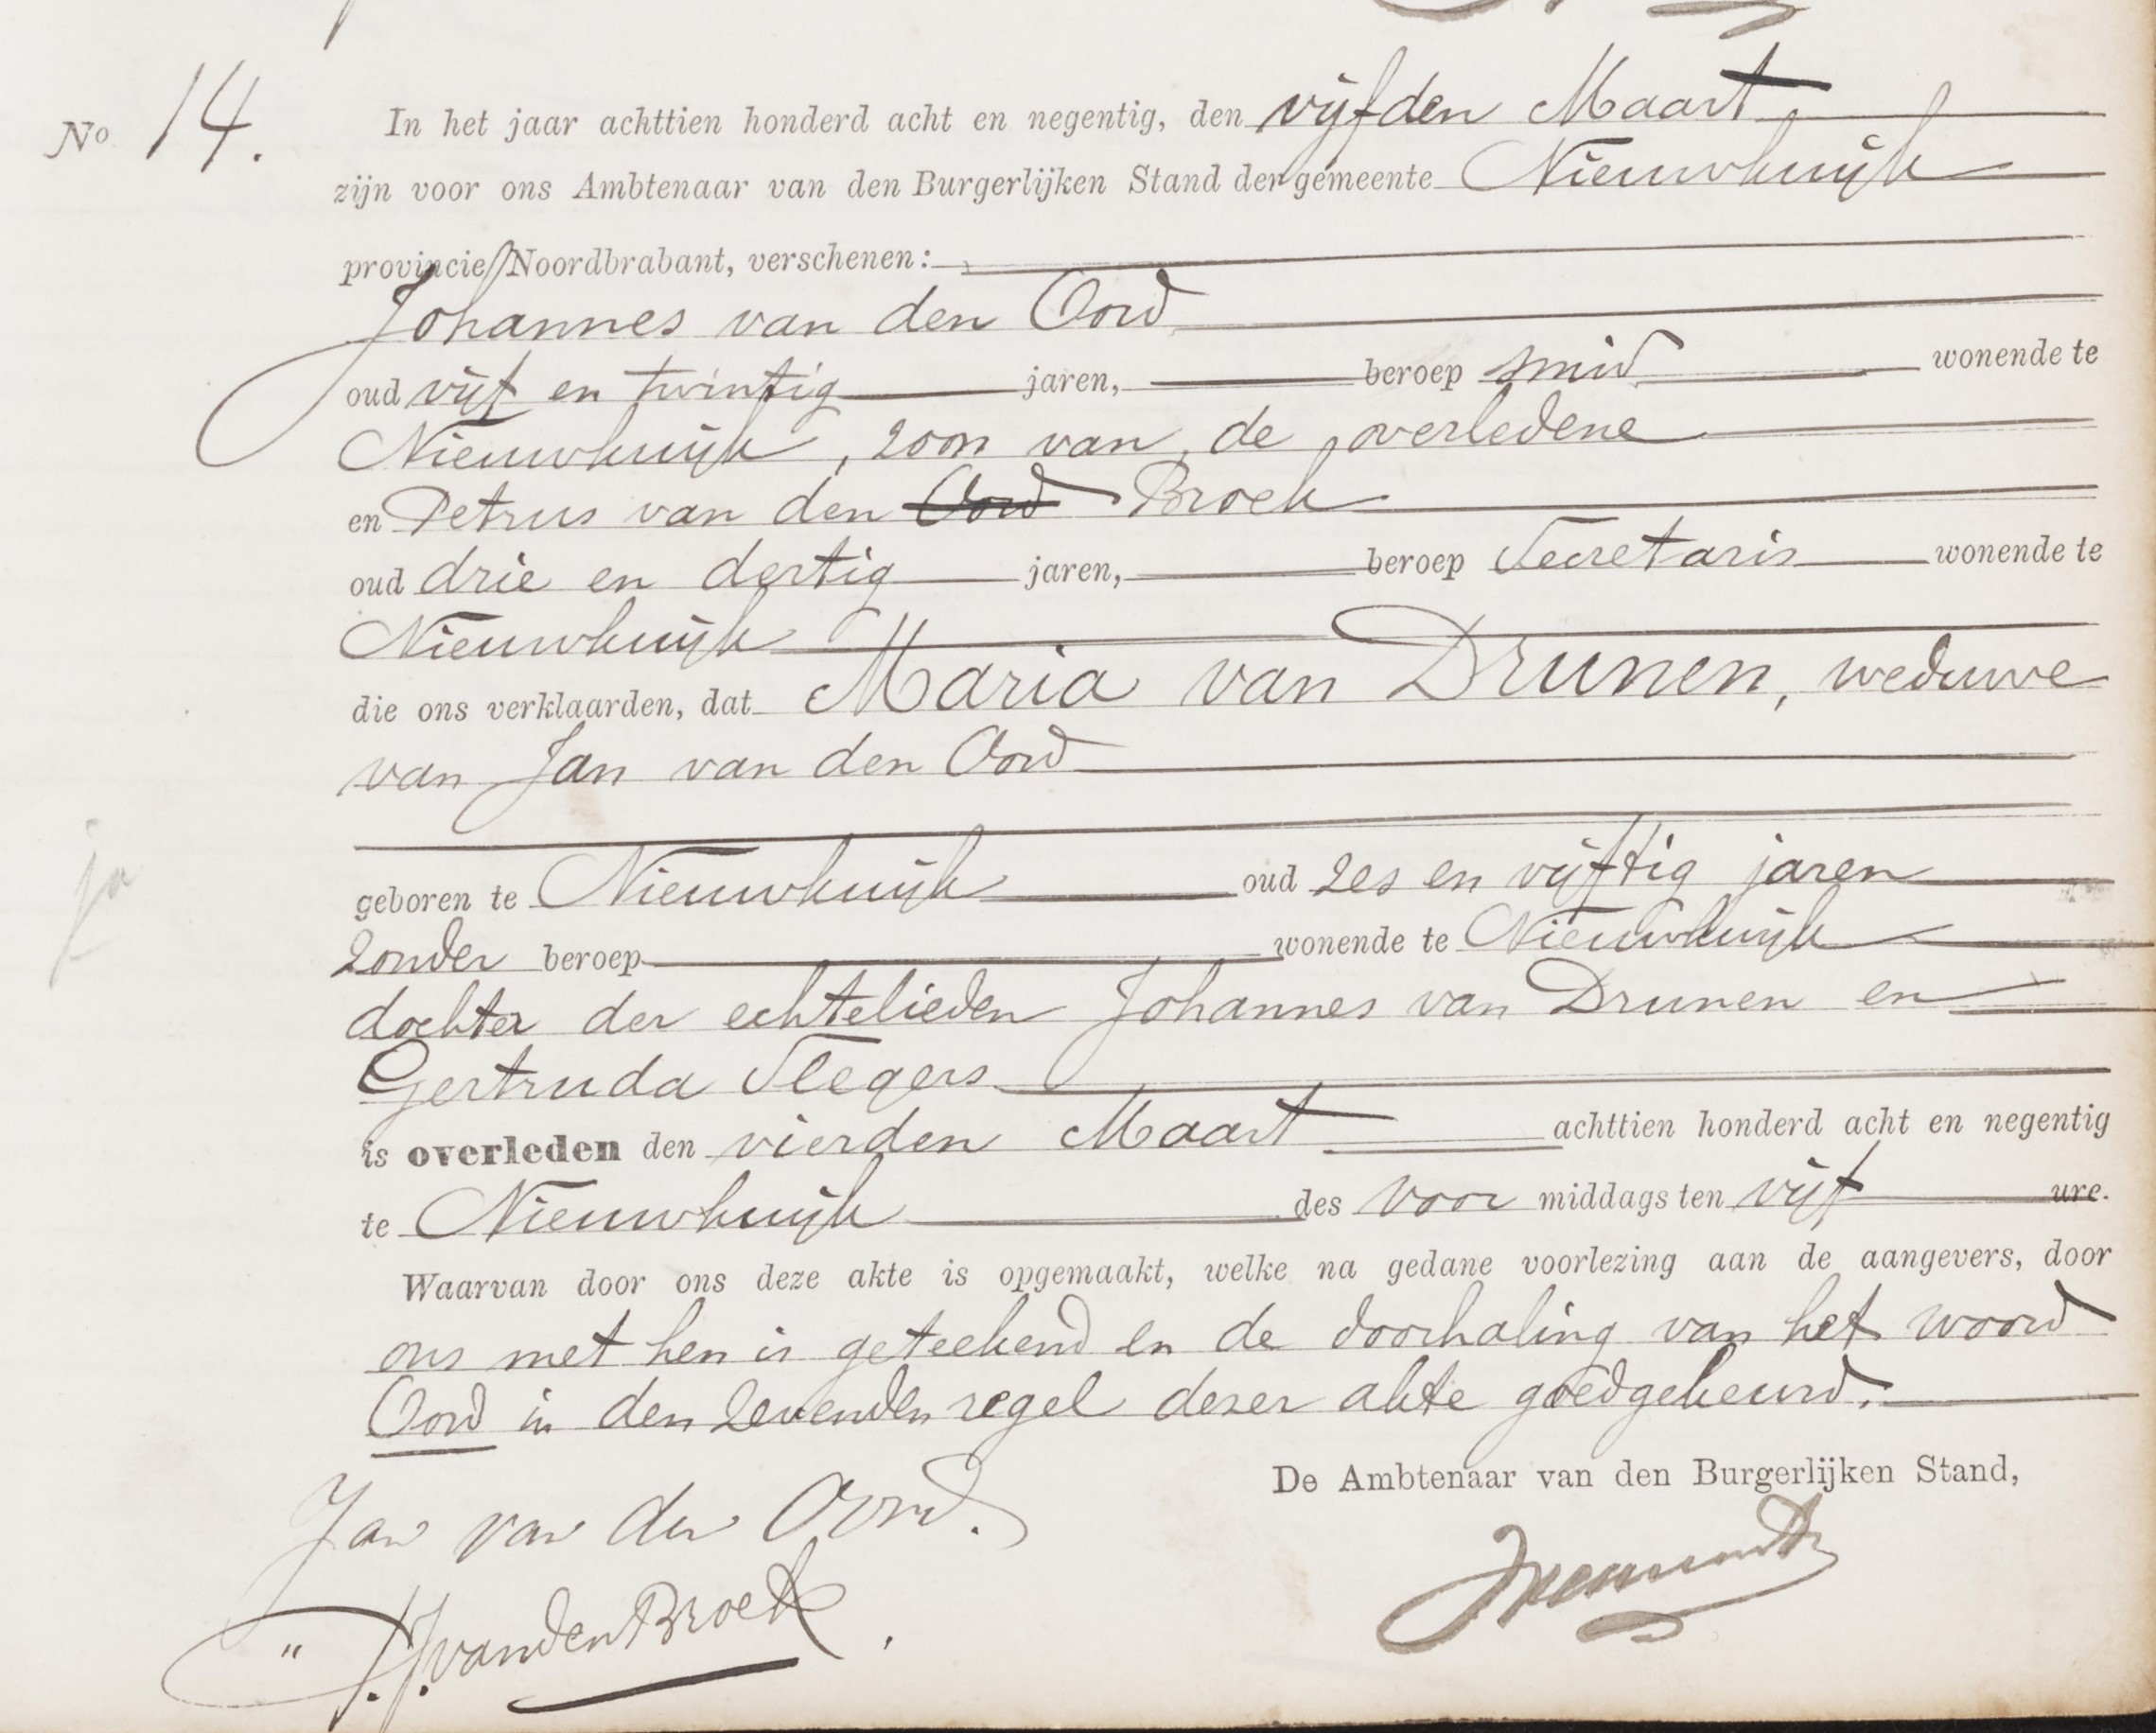 No 14. In het jaar achttien honderd acht en negentig, den vijfden Maart
zijn voor ons Ambtenaar van den Burgerlijken Stand der gemeente Nieuwkuijk
provincie Noordbrabant, verschenen:
Johannes van den Oord
oud vijf en twintig jaren, beroep smid wonende te
Nieuwkuijk, zoon van de overledene
en Petrus van den Oord Broek
oud drie en dertig jaren, beroep Secretaris wonende te
Nieuwkuijk
die ons verklaarden, dat Maria van Drunen, weduwe
van Jan van den Oord
geboren te Nieuwkuijk oud zes en vijftig jaren
zonder beroep wonende te Nieuwkuijk
ja
dochter der echtelieden Johannes van Drunen en
Gertruda Slegers
is overleden den vierden Maart achttien honderd acht en negentig
te Nieuwkuijk des voor middags ten vijf ure.
Waarvan door ons deze akte is opgemaakt, welke na gedane voorlezing aan de aangevers, door
ons met hen is geteekend en de doorhaling van het woord
Oord in den zevenden regel dezer akte goedgekeurd.
De Ambtenaar van den Burgerlijken Stand,
Jan van den Oord.
P. J. van den Broek